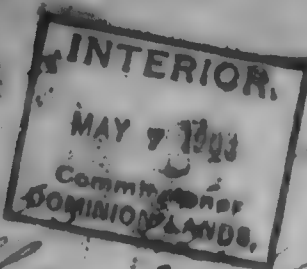 INTERIOR.
MAY 7
Commissioner
DOMINION LANDS.